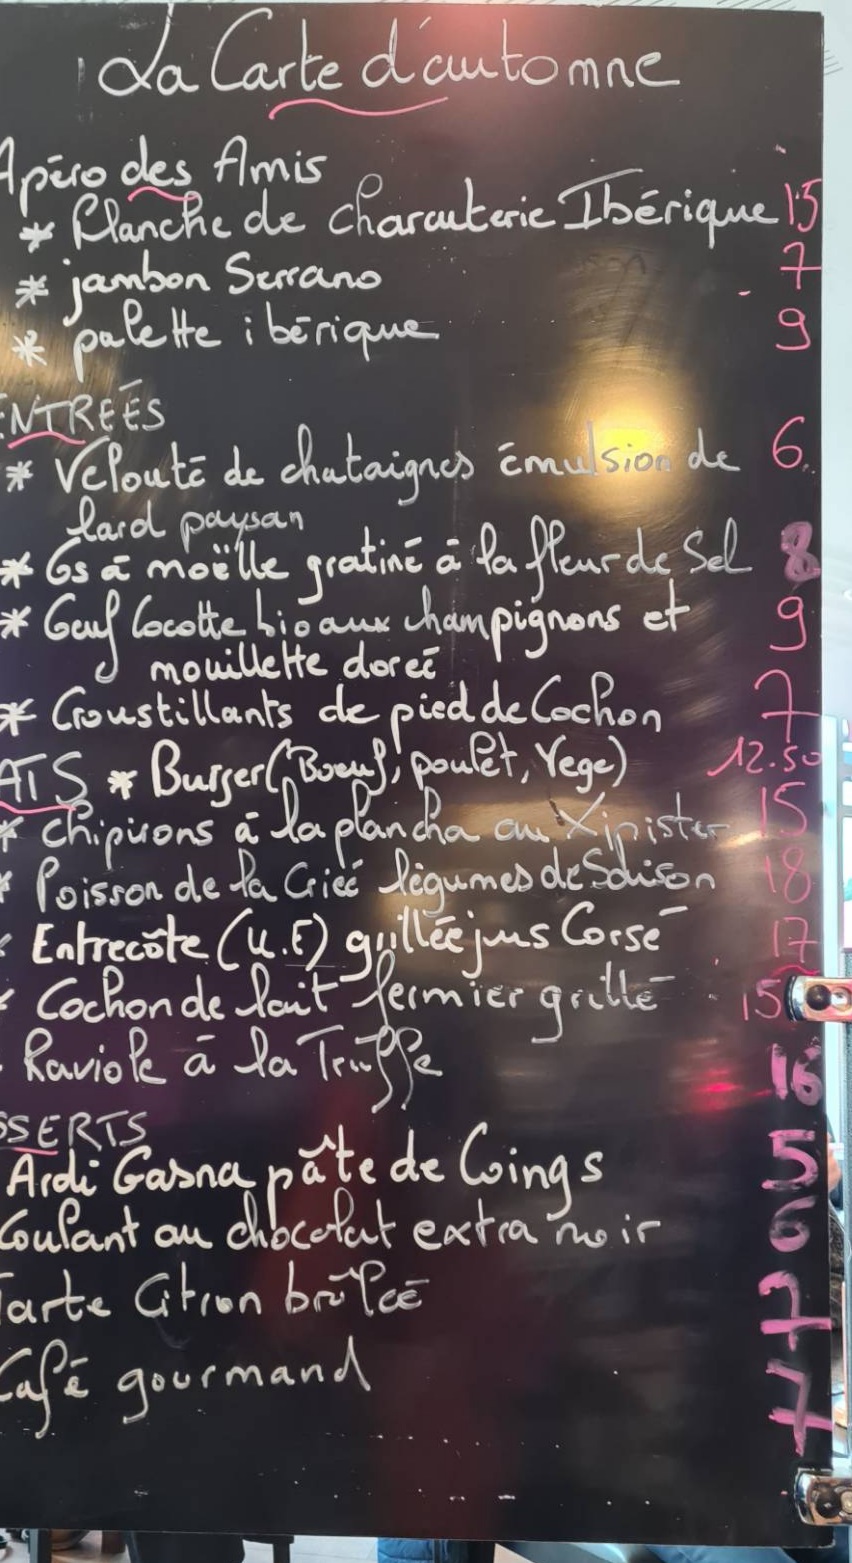 La Carte d'automne
Apéro des Amis
* Planche de charcuterie Ibérique 15
* jambon Serrano 7
* palette ibérique 9
ENTREÉS
* Velouté de chataignes émulsion de 6
lard paysan
* Os à moëlle gratiné à la fleur de Sel 8
* Oeuf Cocotte bio aux champignons et 9
mouillette doreé
* Croustillants de pied de Cochon 7
ATS * Burger (Boeuf, poulet, Vege) 12.50
* chipirons à la plancha au Xipister 15
* Poisson de la Crieé légumes de Saison 18
* Entrecôte (U.E) grillée jus Corsé 17
* Cochon de lait fermier grillé 15
Raviole à la Truffe 16
SSERTS
Ardi Gasna pâte de Coings 5
Coulant au chocolat extra noir 6
Tarte Citron brûlée 7
Café gourmand 7